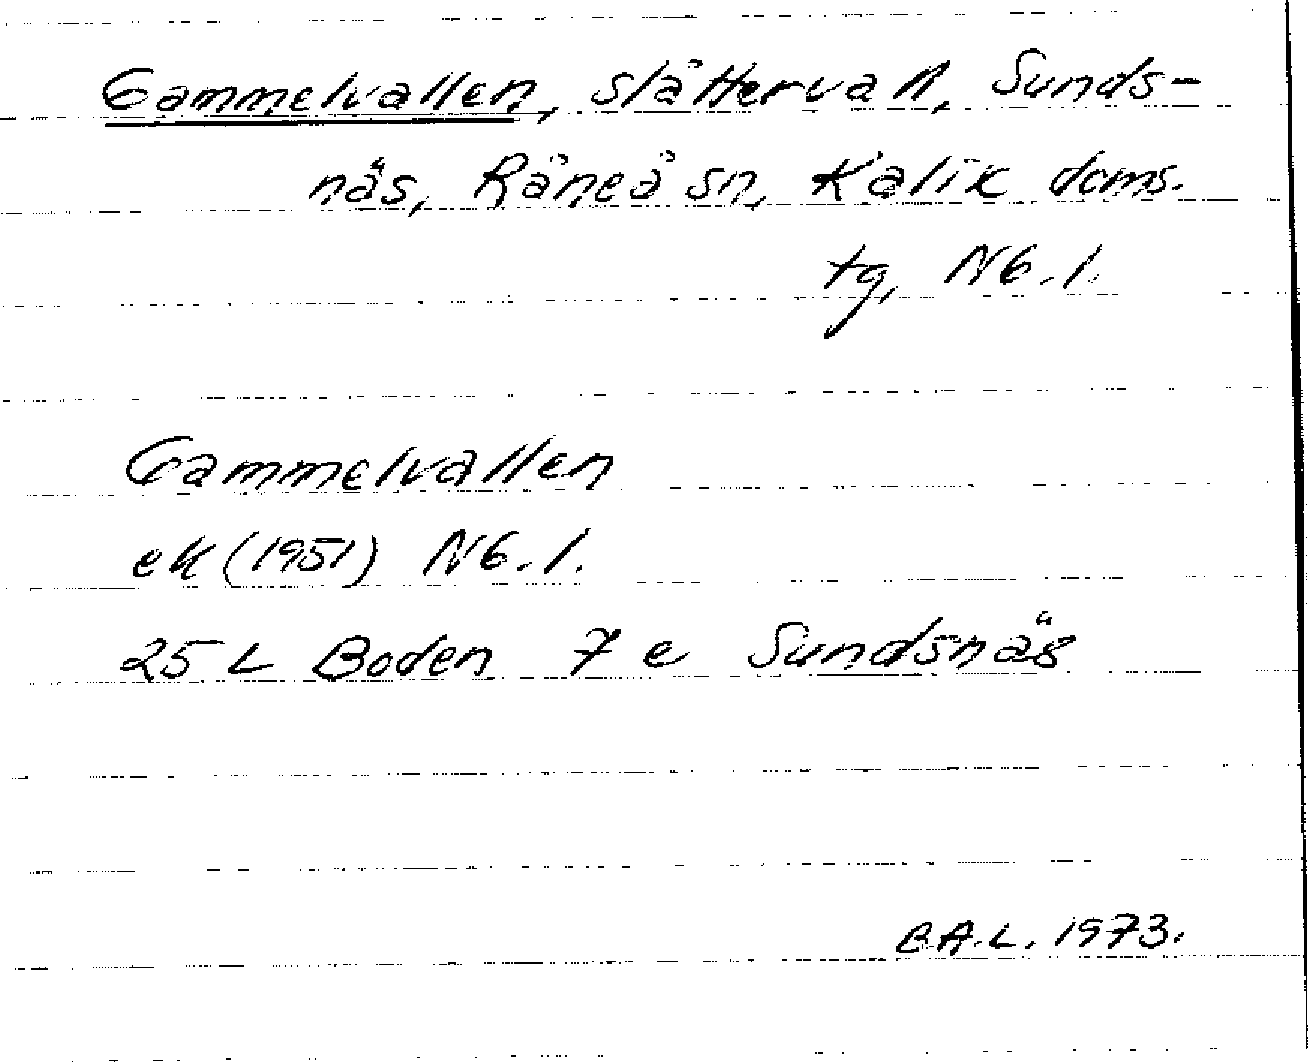 Gammelvallen, slåttervall, Sunds-
näs, Råneå sn, Kalix doms.
tg, Nb. l.
Gammelvallen
ek (1951) Nb. l.
25 L Boden 7 e Sundsnäs
B.A.L. 1973.